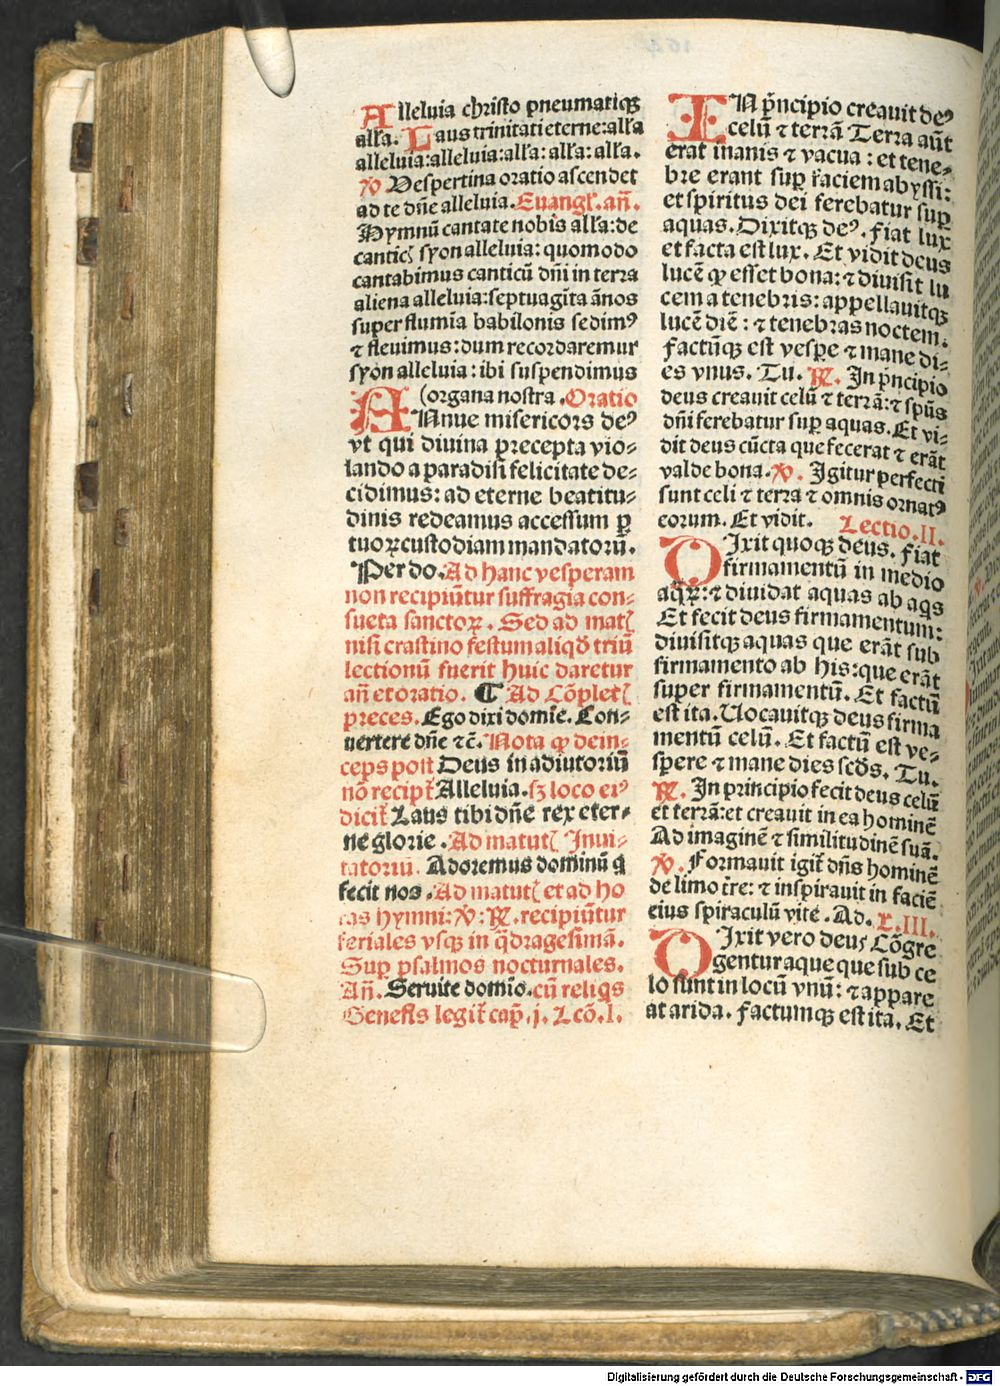 Alleluia christo pneumatiqꝫ
alľa. Laus trinitati eterne: alľa
alleluia: alleluia: alľa: alľa: alľa.
℣ Vespertina oratio ascendet
ad te dñe alleluia. Euangľ. añ.
Hymnū cantate nobis alľa: de
canticꝭ syon alleluia: quomodo
cantabimus canticū dñi in terra
aliena alleluia: septuagīta ānos
super flumīa babilonis sedimꝰ
⁊ fleuimus: dum recordaremur
syon alleluia: ibi suspendimus
(organa nostra. Oratio
ANnue misericors deꝰ
vt qui diuina precepta vio⸗
lando a paradisi felicitate de⸗
cidimus: ad eterne beatitu⸗
dinis redeamus accessum ꝑ
tuoꝝ custodiam mandatorū.
Per do. Ad hanc vesperam
non recipiūtur suffragia con⸗
sueta sanctoꝝ. Sed ad matꝭ
nisi crastino festum aliqđ triū
lectionū fuerit huic daretur
añ et oratio. ¶ Ad Cōpletꝭ
preces. Ego dixi domīe. Con⸗
uertere dñe ⁊c̄. Nota ꝙ dein⸗
ceps post Deus in adiutoriū
nō recipit̄ Alleluia. sꝫ loco eiꝰ
dicit̄ Laus tibi dñe rex eter⸗
ne glorie. Ad matutꝭ Inui⸗
tatoriū. Adoremus dominū q̄
fecit nos. Ad matutꝭ et ad ho
ras hymni: ℣: ℟. recipiūtur
feriales vsqꝫ in q̄dragesimā.
Suꝑ psalmos nocturnales.
Añ. Seruite domīo. cū reliqs
Genesis legit̄ cap̄. j. Lcō. I.
IN prīncipio creauit deꝰ
celū ⁊ terrā Terra aūt
erat inanis ⁊ vacua: et tene⸗
bre erant suꝑ faciem abyssi:
et spiritus dei ferebatur suꝑ
aquas. Dixitqꝫ deꝰ. fiat lux
et facta est lux. Et vidit deus
lucē ꝙ esset bona: ⁊ diuisit lu
cem a tenebris: appellauitqꝫ
lucē diē: ⁊ tenebras noctem.
Factūqꝫ est vespe ⁊ mane di⸗
es vnus. Tu. ℟. In prīncipio
deus creauit celū ⁊ terrā: ⁊ spūs
dñi ferebatur suꝑ aquas. Et vi⸗
dit deus cūcta que fecerat ⁊ erāt
valde bona. ℣. Igitur perfecti
sunt celi ⁊ terra ⁊ omnis ornatꝰ
eorum. Et vidit. Lectio. II.
DIxit quoqꝫ deus. fiat
firmamentū in medio
aq̄ꝝ: ⁊ diuidat aquas ab aqs
Et fecit deus firmamentum:
diuisitqꝫ aquas que erāt sub
firmamento ab his: que erāt
super firmamentū. Et factū
est ita. Uocauitqꝫ deus firma
mentū celū. Et factū est ve⸗
spere ⁊ mane dies scđs. Tu.
℟. In principio fecit deus celū
et terrā: et creauit in ea hominē
Ad imaginē ⁊ similitudinē suā.
℣. Formauit igit̄ dñs hominē
de limo tr̄e: ⁊ inspirauit in faciē
eius spiraculū vite. Ad. L. III.
DIxit vero deus Cōgre
gentur aque que sub ce
lo sunt in locū vnū: ⁊ appare
at arida. Factumqꝫ est ita. Et
Digitalisierung gefördert durch die Deutsche Forschungsgemeinschaft - DFG